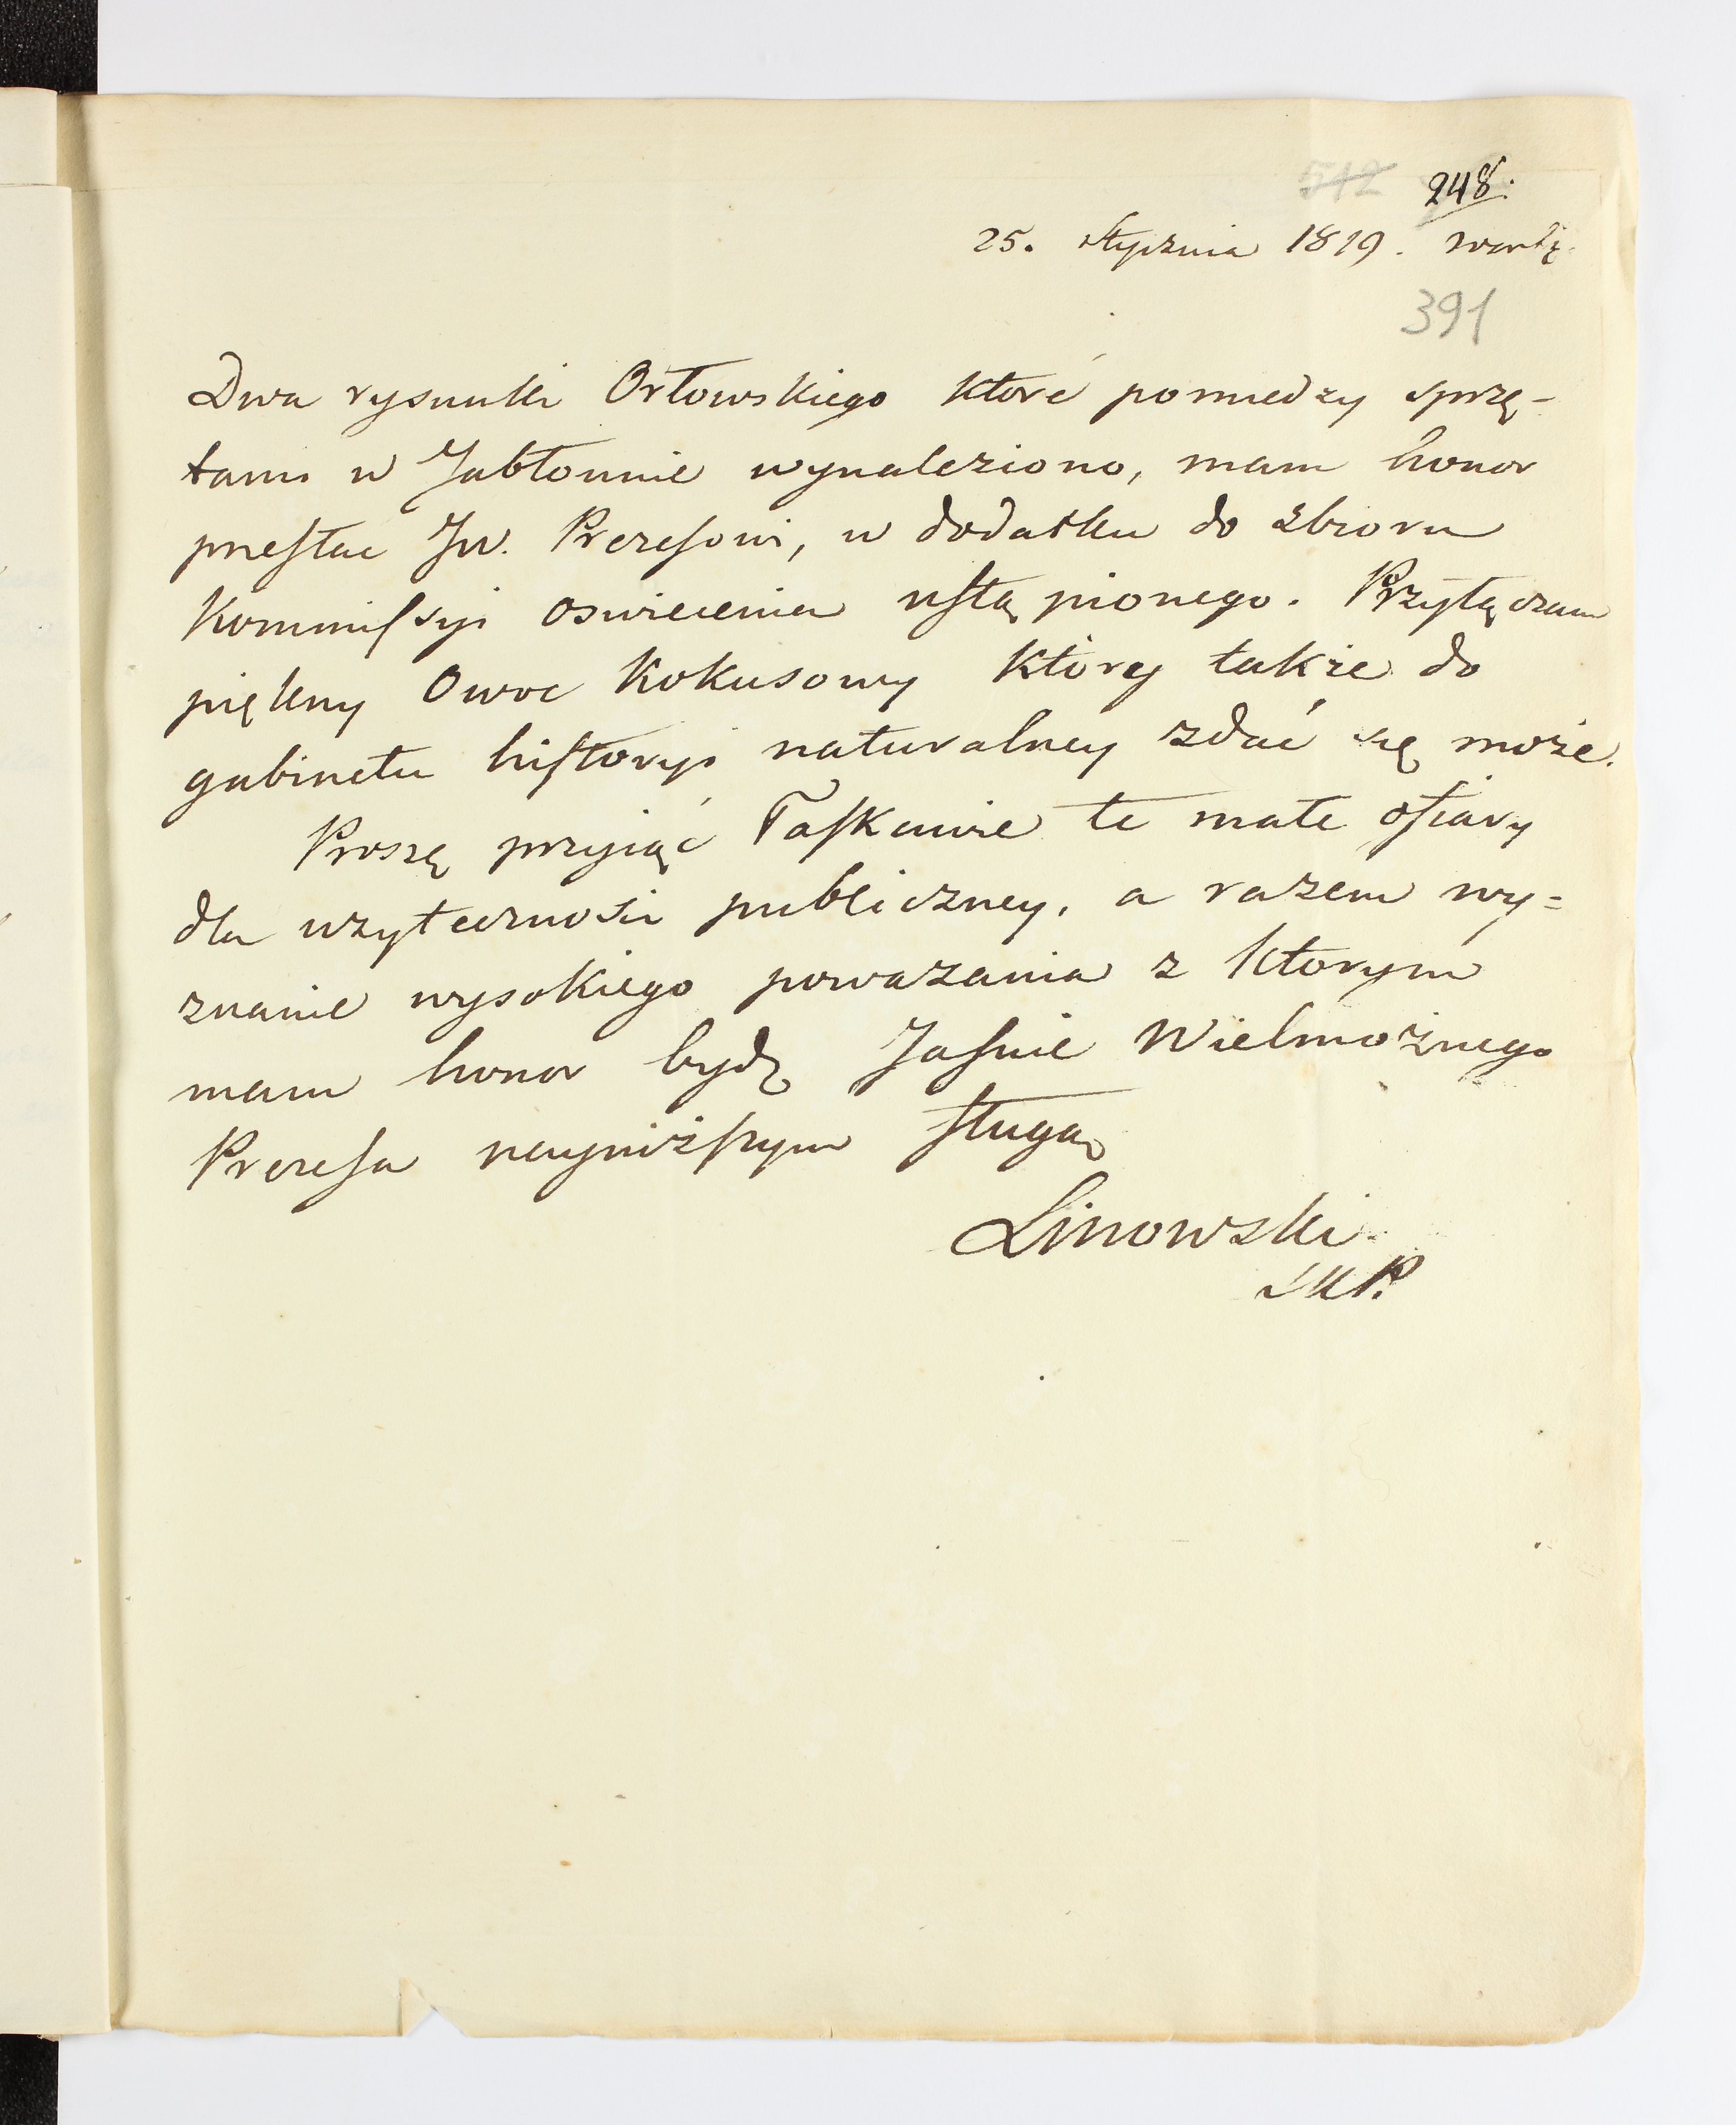 542 248.
25. stycznia 1819.
391
Dwa rysunki Orłowskiego które pomiedzy sprzę-
tami w Jabłonnie wynaleziono, mam honor
presłac JW. Prezesowi, w dodatku do zbioru
Kommissyi oswiecenia ustąpionego. Przyłączam
piękny Owoc Kokusowy który takze do
gabinetu historyi naturalney zdać się może.
Proszę przyiąć łaskawie te małe ofiary
dla uzytecznosci publiczney, a razem wy=
znanie wysokiego powazania z ktorym
mam honor bydz Jasnie Wielmożnego
Prezesa nayniższym sługą
Linowski